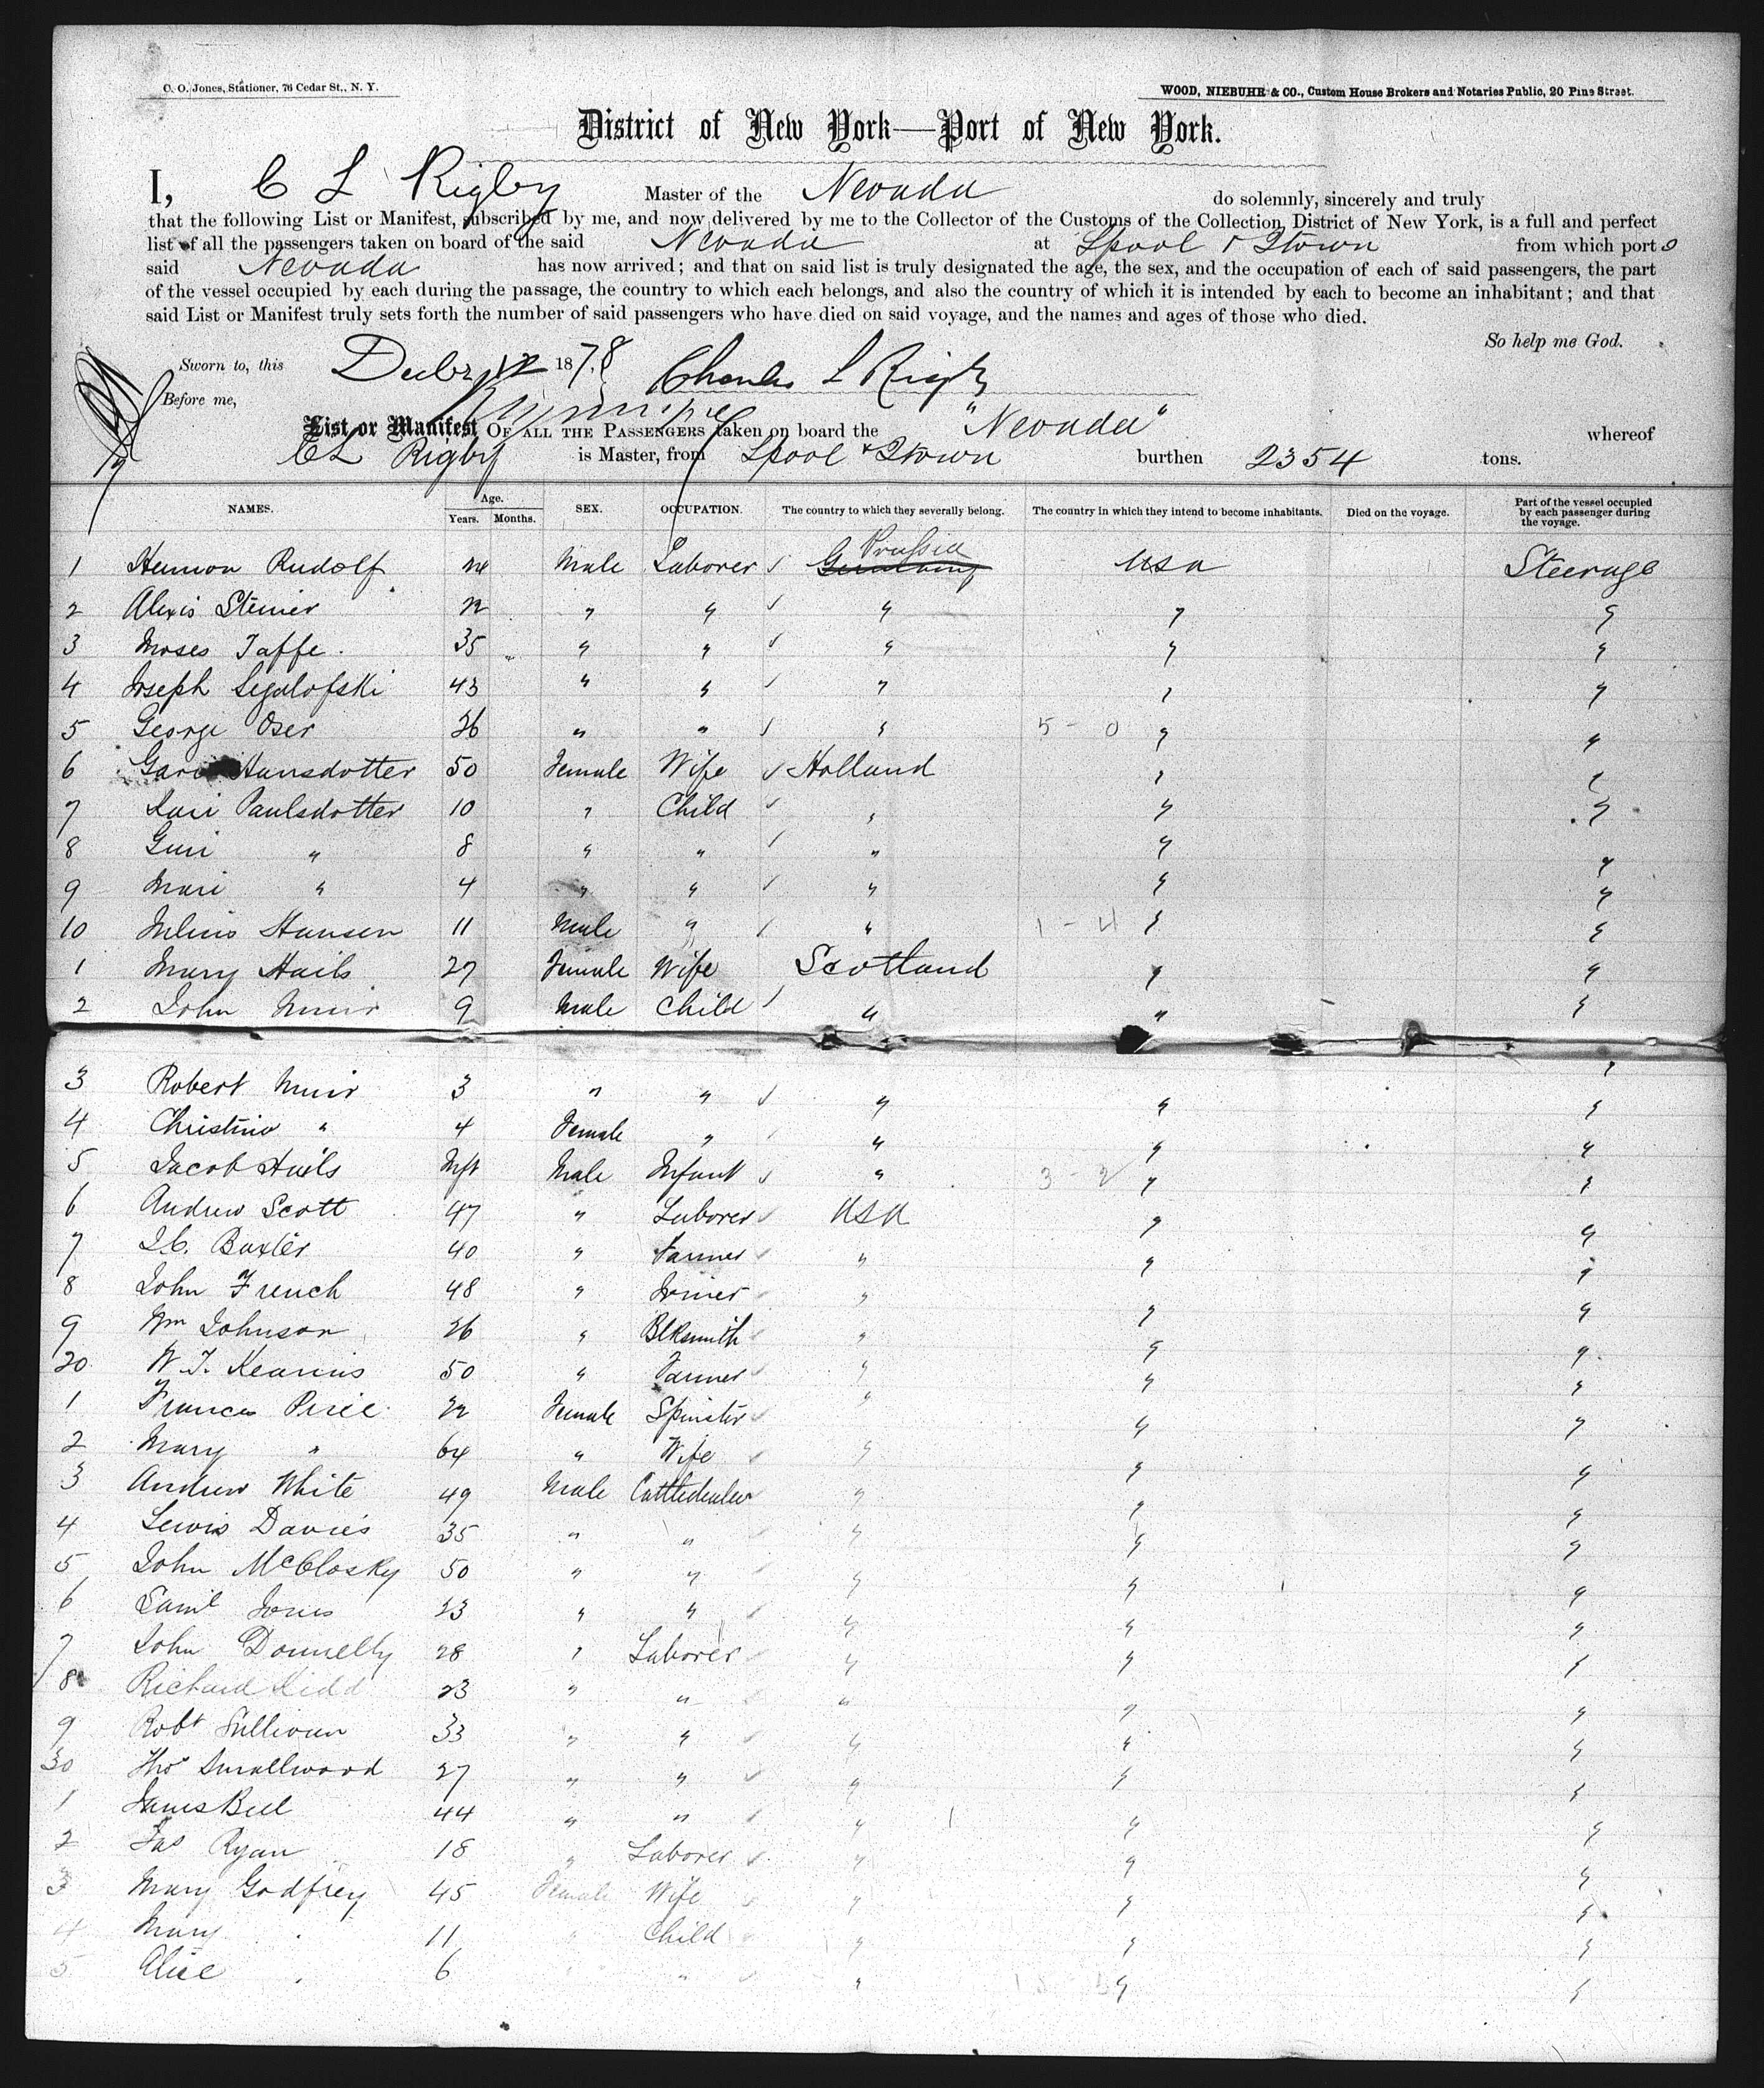 C. O. Jones, Stationer, 76 Cedar St., N. Y.
WOOD, NIEBUHR & CO., Custom House Brokers and Notaries Public, 20 Pine Street.
District of New York—Port of New York.
I, C L Rigby Master of the Nevada do solemnly, sincerely and truly
that the following List or Manifest, subscribed by me, and now delivered by me to the Collector of the Customs of the Collection District of New York, is a full and perfect
list of all the passengers taken on board of the said Nevada at Lpool & Qtown from which port
said Nevada has now arrived; and that on said list is truly designated the age, the sex, and the occupation of each of said passengers, the part
of the vessel occupied by each during the passage, the country to which each belongs, and also the country of which it is intended by each to become an inhabitant; and that
said List or Manifest truly sets forth the number of said passengers who have died on said voyage, and the names and ages of those who died.
So help me God.
Sworn to, this Decbr 12 1878 Charles L Rigby
Before me,
List or Manifest OF ALL THE PASSENGERS taken on board the "Nevada" whereof
C L Rigby is Master, from Lpool & Qtown burthen 2354 tons.
NAMES. Age. Years. Months. SEX. OCCUPATION. The country to which they severally belong. The country in which they intend to become inhabitants. Died on the voyage. Part of the vessel occupied by each passenger during the voyage.
Prussia
1 Hermon Rudolf 24 Male Laborer Germany USA Steerage
2 Alexis Steiner 22 " " " " "
3 Moses Jaffe 35 " " " " "
4 Joseph Segalofski 43 " " " " "
5 George Oser 36 " " " 5 - 0 " "
6 Hansdotter 50 Female Wife Holland " "
7 Kari Paulsdotter 10 " Child " " "
8 Guri " 8 " " " " "
9 Mari " 4 " " " " "
10 Julius Hansen 11 Male " " 1 - 4 " "
1 Mary Hails 27 Female Wife Scotland " "
2 John Muir 9 Male Child " " "
3 Robert Muir 3 " " " " "
4 Christina " 4 Female " " " "
5 Jacob Hails Inft Male Infant " 3 - 2 " "
6 Andrew Scott 47 " Laborer USA " "
7 J.C. Baxter 40 " Farmer " " "
8 John French 48 " Joiner " " "
9 Wm Johnson 26 " Blksmith " " "
20 W. T. Kearins 50 " Farmer " " "
1 Frances Pirie 22 Female Spinster " " "
2 Mary " 64 " Wife " " "
3 Andrew White 49 Male Cattledealer " " "
4 Lewis Davies 35 " " " " "
5 John McClosky 50 " " " " "
6 Saml Jones 23 " " " " "
7 John Donnelly 28 " Laborer " " "
8 Richard Kidd 23 " " " " "
9 Robt Sullivan 33 " " " " "
30 Thos Smallwood 27 " " " " "
1 James Bell 44 " " " " "
2 Jas Ryan 18 " Laborer " " "
3 Mary Godfrey 45 Female Wife " " "
4 Mary " 11 " Child " " "
5 Alice " 6 " " " " "